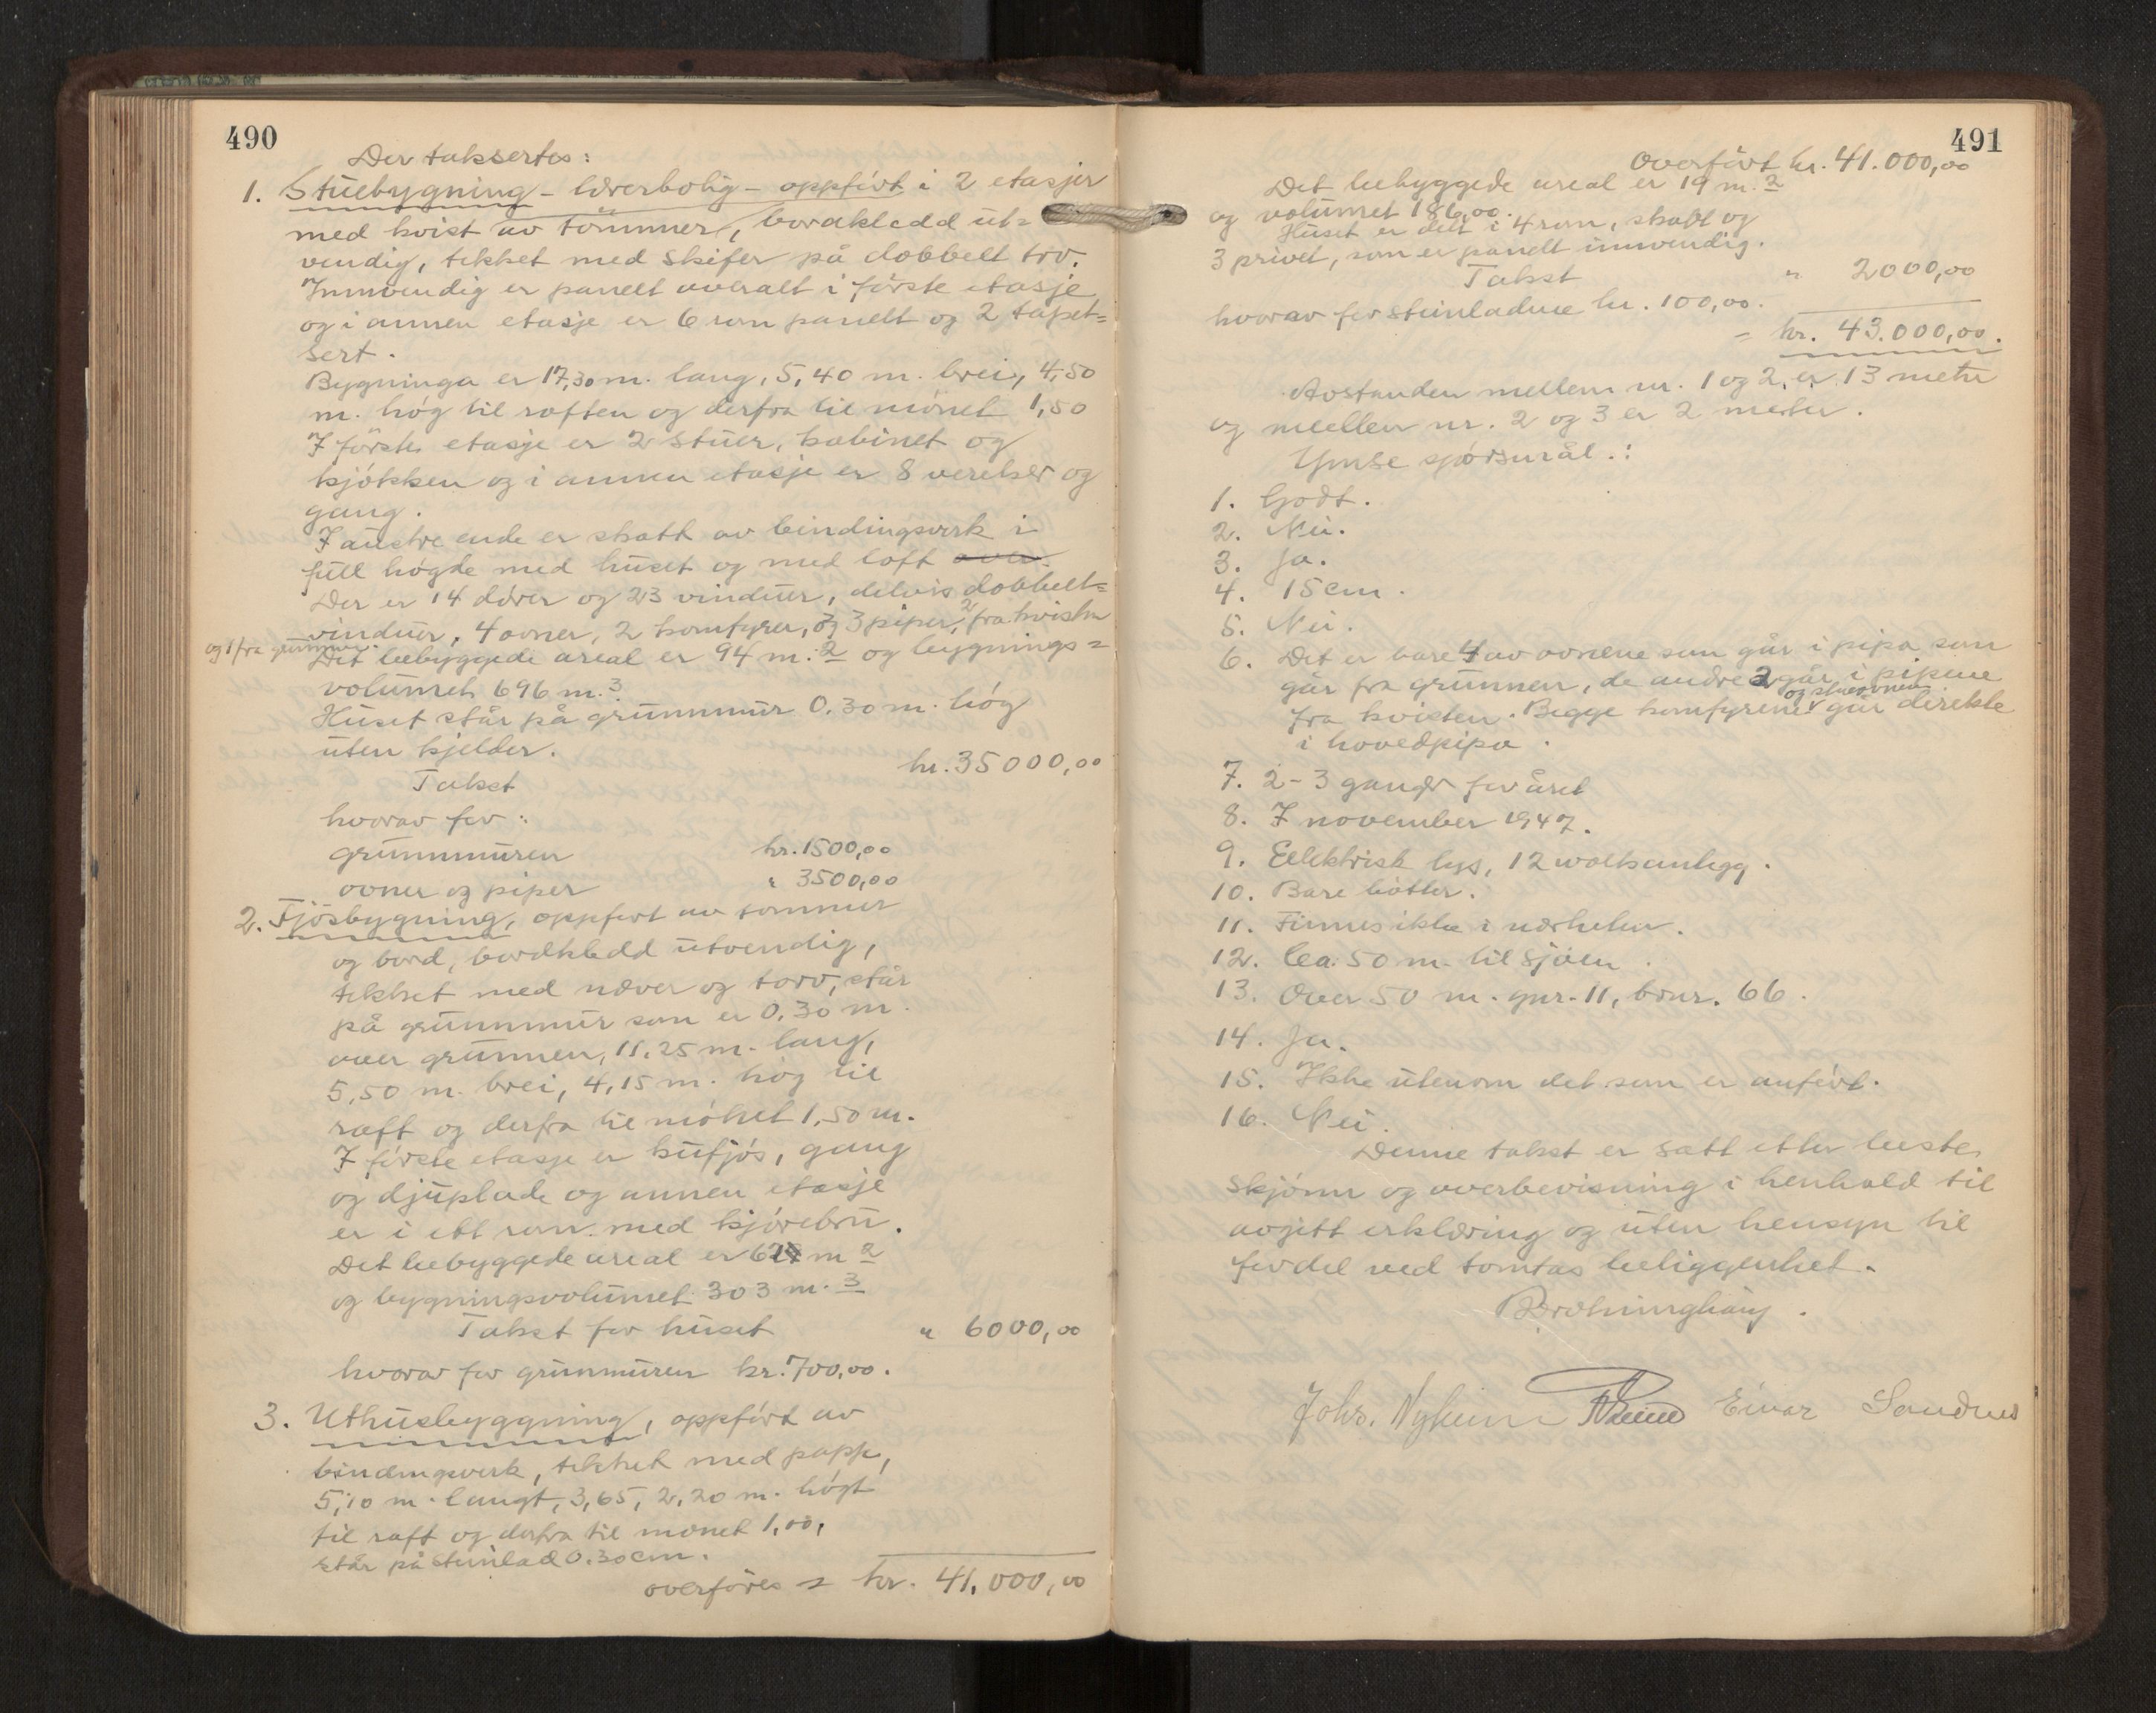 490
Der taksertes:
1. Stuebygning - lærerbolig - oppført i 2 etasjer
med kvist av tømmer, bordkledd ut=
vendig, tekket med skifer på dobbelt tro.
Innvendig er panelt overalt i første etasje
og i annen etasje er 6 rom panelt og 2 tapet=
sert.
Bygninga er 17,30 m. lang, 5,40 m. brei, 4,50
m. høg til raften og derfra til mønet 1,50
I første etasje er 2 stuer, kabinet og
kjøkken og i annen etasje er 8 verelser og
gang.
I austre ende er skott av bindingsverk i
full høgde med huset og med loft over.
Der er 14 dører og 23 vinduer, delvis dobbelt=
vinduer, 4 ovner, 2 komfyrer, og 3 piper, 2 fra kvisten
og 1 fra grunnen.
Det bebyggede areal er 94 m.2 og bygnings=
volumet 696 m.3
Huset står på grunnmur 0.30 m. høg
uten kjelder.
Takst kr. 35000,00
hvorav for:
grunnmuren kr. 1500,00
ovner og piper " 3500,00
2. Fjøsbygning, oppført av tømmer
og bord, bordkledd utvendig,
tekket med næver og torv, står
på grunnmur som er 0,30 m.
over grunnen, 11.25 m. lang,
5,50 m. brei, 4,15 m. høg til
raft og derfra til mønet 1,50 m.
I første etasje er kufjøs, gang
og djuplade og annen etasje
er i ett rom med kjørebru.
Det bebyggede areal er 62 m2
og bygningsvolumet 303 m.3
Takst for huset " 6000,00
hvorav for grunnmuren kr. 700,00.
3. Uthusbyggning, oppført av
bindingsverk, tekket med papp,
5,10 m. langt, 3,65, 2,20 m. høgt
til raft og derfra til mønet 1,00,
står på steinlad 0.30 cm.
overføres = kr. 41.000,00
491
Overført kr. 41.000,00
Det bebyggede areal er 19 m.2
og volumet 186,00.
Huset er delt i 4 rom, skott og
3 privet, som er panelt innvendig.
Takst " 2000,00
hvorav for steinladene kr. 100,00.
= kr. 43.000,00.
Avstanden mellem nr. 1 og 2, er 13 meter
og mellem nr. 2 og 3 er 2 meter.
Ymse spørsmål.:
1. Godt.
2. Nei.
3. Ja.
4. 15 cm.
5. Nei.
6. Det er bare 4 av ovnene som går i pipa som
går fra grunnen, de andre 2 går i pipene
fra kvisten. Begge komfyrene og stueovnen går direkte
i hovedpipa.
7. 2-3 ganger for året
8. I november 1947.
9. Eelektrisk lys, 12 woltsanlegg.
10. Bare bøtter.
11. Finnes ikke i nærheten.
12. Ca. 50 m. til sjøen.
13. Over 50 m. gnr. 11, bnr. 66.
14. Ja.
15. Ikke utenom det som er anført.
16. Nei.
Denne takst er satt etter beste
skjønn og overbevisning i henhold til
avgitt erklæring og uten hensyn til
fordel ved tomtas beliggenhet.
Johs. Nyheim Einar Sandnes